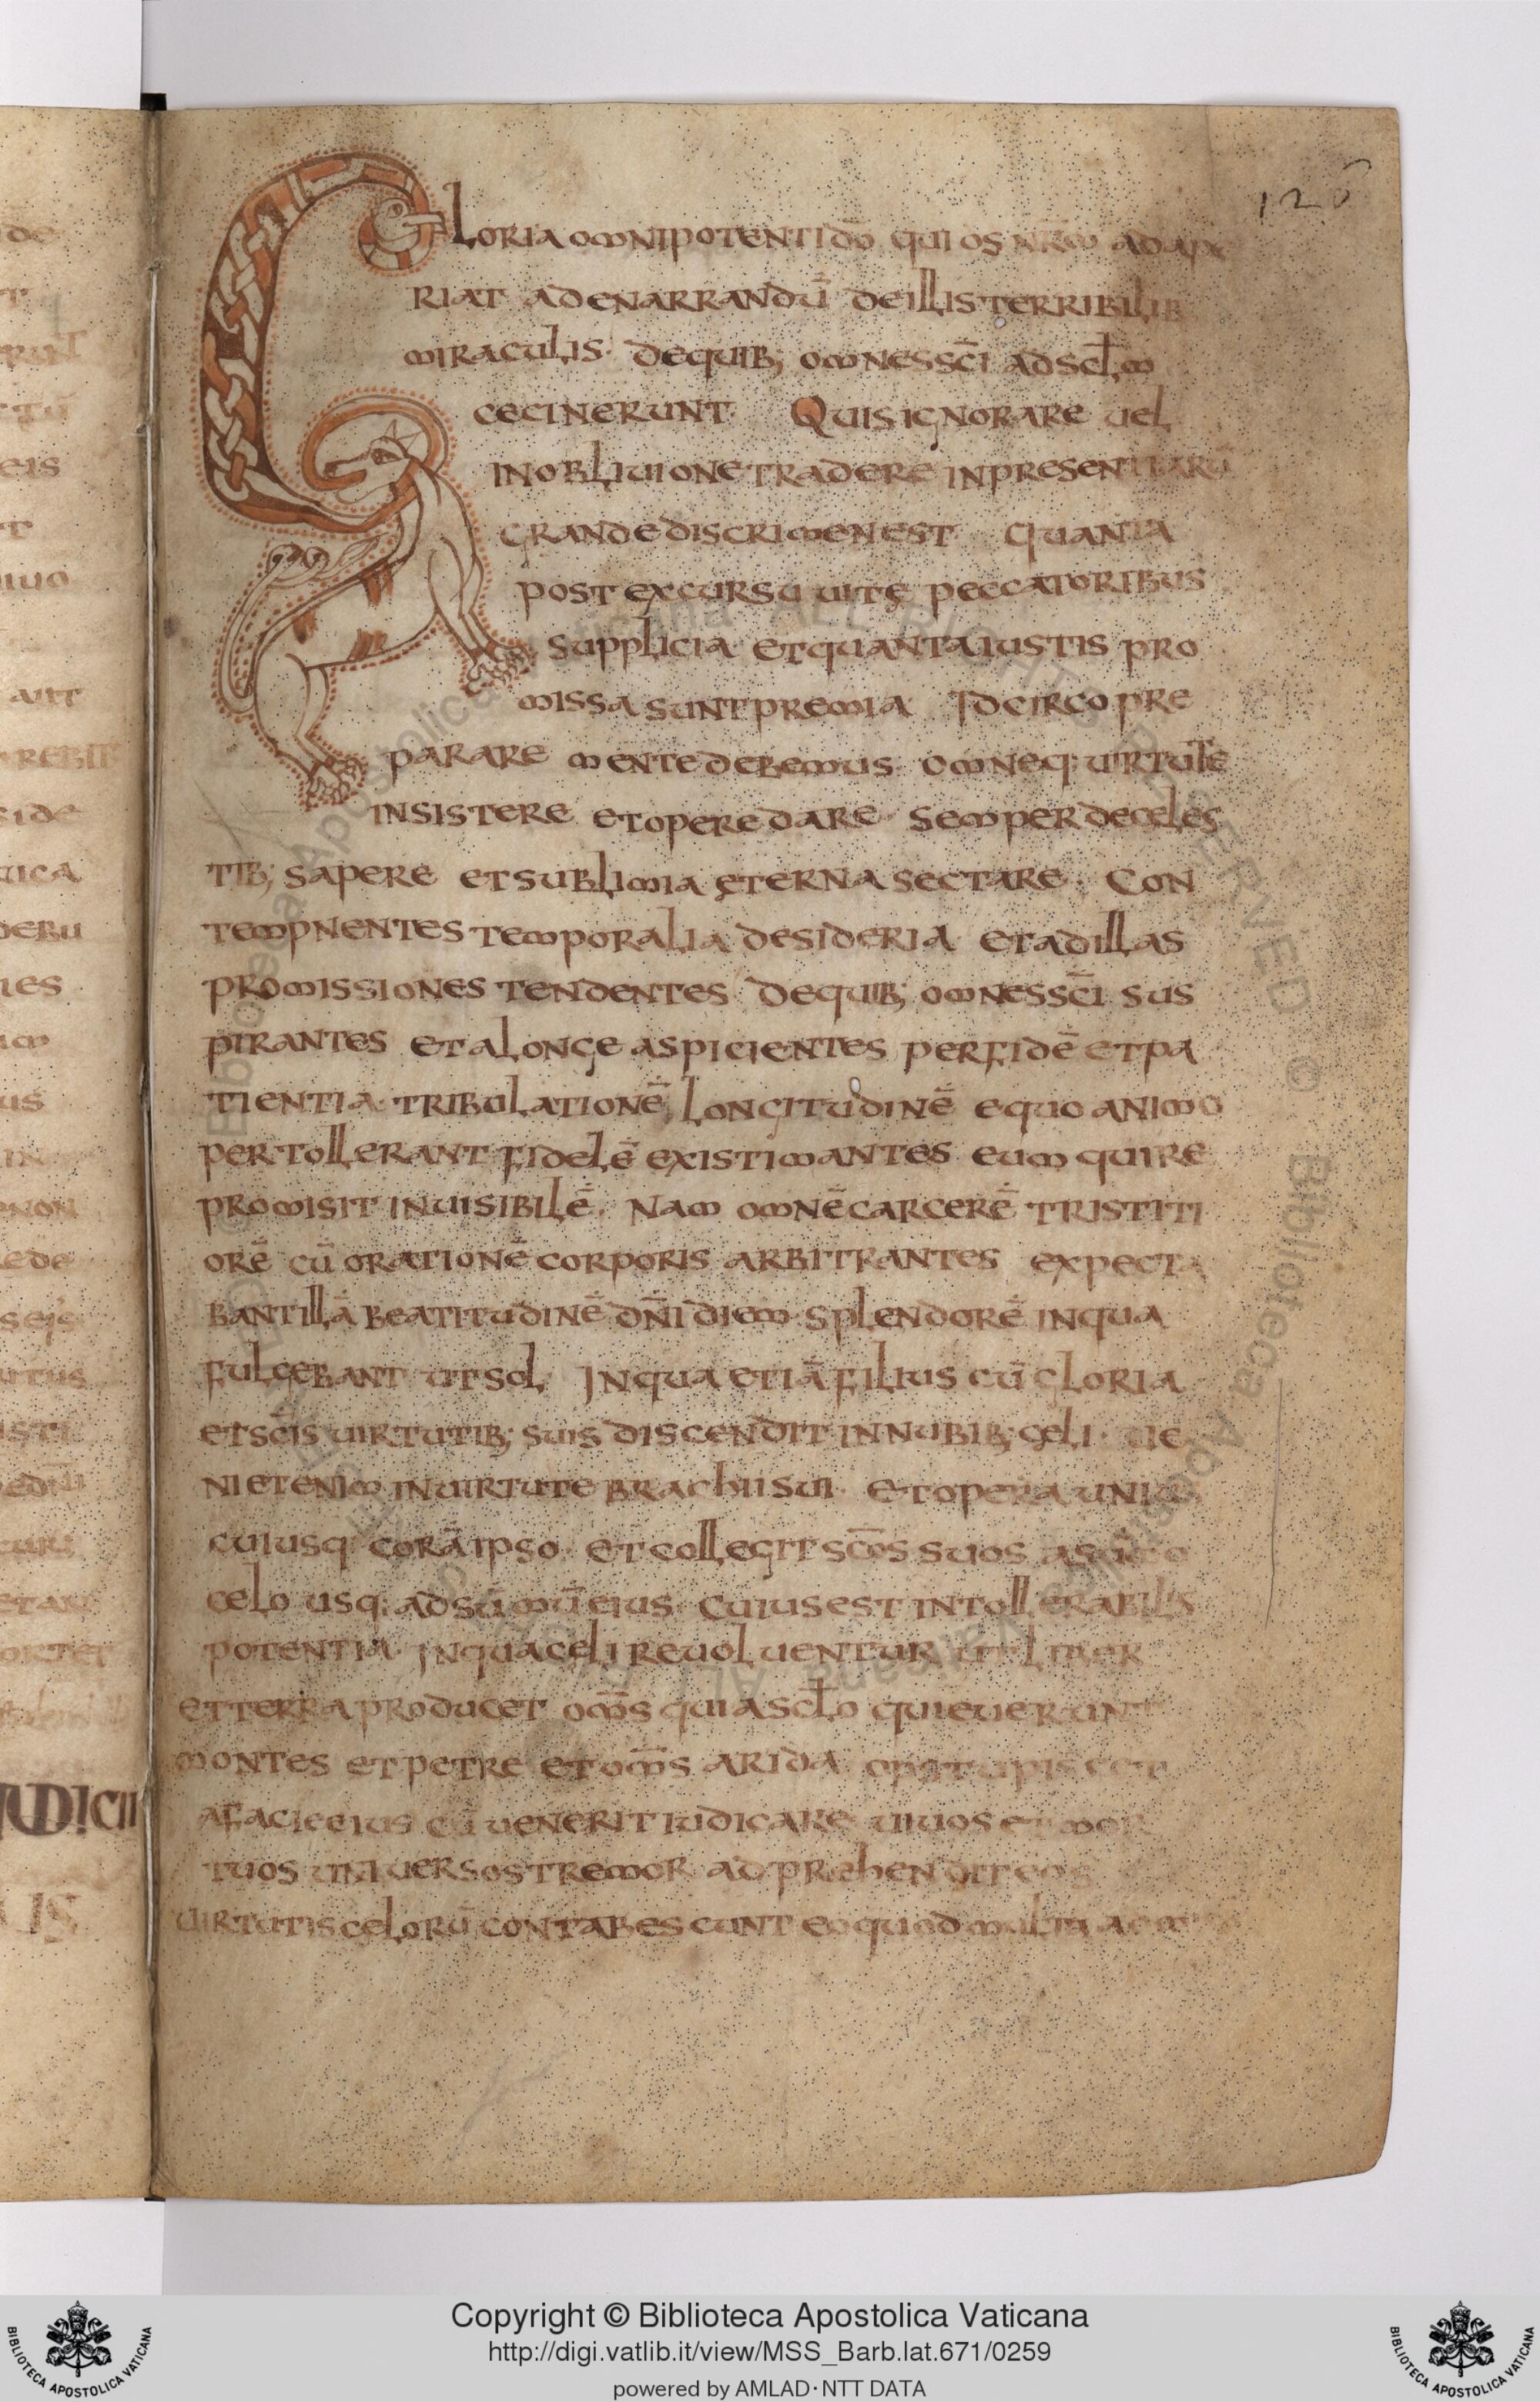 126
GLORIA OMNIPOTENTI DŌ QUI OS NR̄M ADAPE
RIAT AD ENARRANDŪ DE ILLIS TERRIBILIB
MIRACULIS· DE QUIB; OMNES SC̄I AD SCL̄M
CECINERUNT· QUIS IGNORARE UEL
IN OBLIUIONE TRADERE INPRESENTIARŪ
GRANDE DISCRIMEN EST QUANTA
POST EXCURSU UITĘ PECCATORIBUS
SUPPLICIA ET QUANTA IUSTIS PRO
MISSA SUNT PREMIA IDCIRCO PRE
PARARE MENTE DEBEMUS OMNEQ: UIRTUTE
INSISTERE ET OPERE DARE· SEMPER DE CELES
TIB; SAPERE ET SUBLIMIA ĘTERNA SECTARE· CON
TEMPNENTES TEMPORALIA DESIDERIA ET AD ILLAS
PROMISSIONES TENDENTES DE QUIB; OMNES SC̄I SUS
PIRANTES ET A LONGE ASPICIENTES PER FIDĒ ET PA
TIENTIA· TRIBULATIONĒ LONGITUDINĒ EQUO ANIMO
PERTOLLERANT FIDELĒ EXISTIMANTES EUM QUI RE
PROMISIT INUISIBILĒ· NAM OMNĒ CARCERĒ TRISTITI
ORĒ CŪ ORATIONĒ CORPORIS ARBITRANTES EXPECTA
BANT ILLĀ BEATITUDINĒ DN̄I DIEM SPLENDORĒ IN QUA
FULGEBANT UT SOL IN QUA ETIĀ FILIUS CŪ GLORIA
ET SC̄IS UIRTUTIB; SUIS DISCENDIT IN NUBIB; CĘLI· UE
NIET ENIM IN UIRTUTE BRACHII SUI· ET OPERA UNIUS
CUIUSQ: CORĀ IPSO ET COLLEGIT SC̄OS SUOS A SŪMO
CELO USQ: AD SŪMŪ EIUS CUIUS EST INTOLLERABILIS
POTENTIA· IN QUA CELI REUOLUENTUR UT LIBER
ET TERRA PRODUCET OM̄S QUI A SCL̄O QUIEUERUNT
MONTES ET PETRE ET OM̄S ARIDA OPSTUPISCET
A FACIE EIUS CŪ UENERIT IUDICARE UIUOS ET MOR
TUOS UNIUERSOS TREMOR ADPRAEHENDIT EOS
UIRTUTIS CELORŪ CONTABESCUNT EO QUOD MULTA
Copyright © Biblioteca Apostolica Vaticana
http://digi.vatlib.it/view/MSS_Barb.lat.671/0259
powered by AMLAD·NTT DATA
BIBLIOTECA APOSTOLICA VATICANA
BIBLIOTECA APOSTOLICA VATICANA